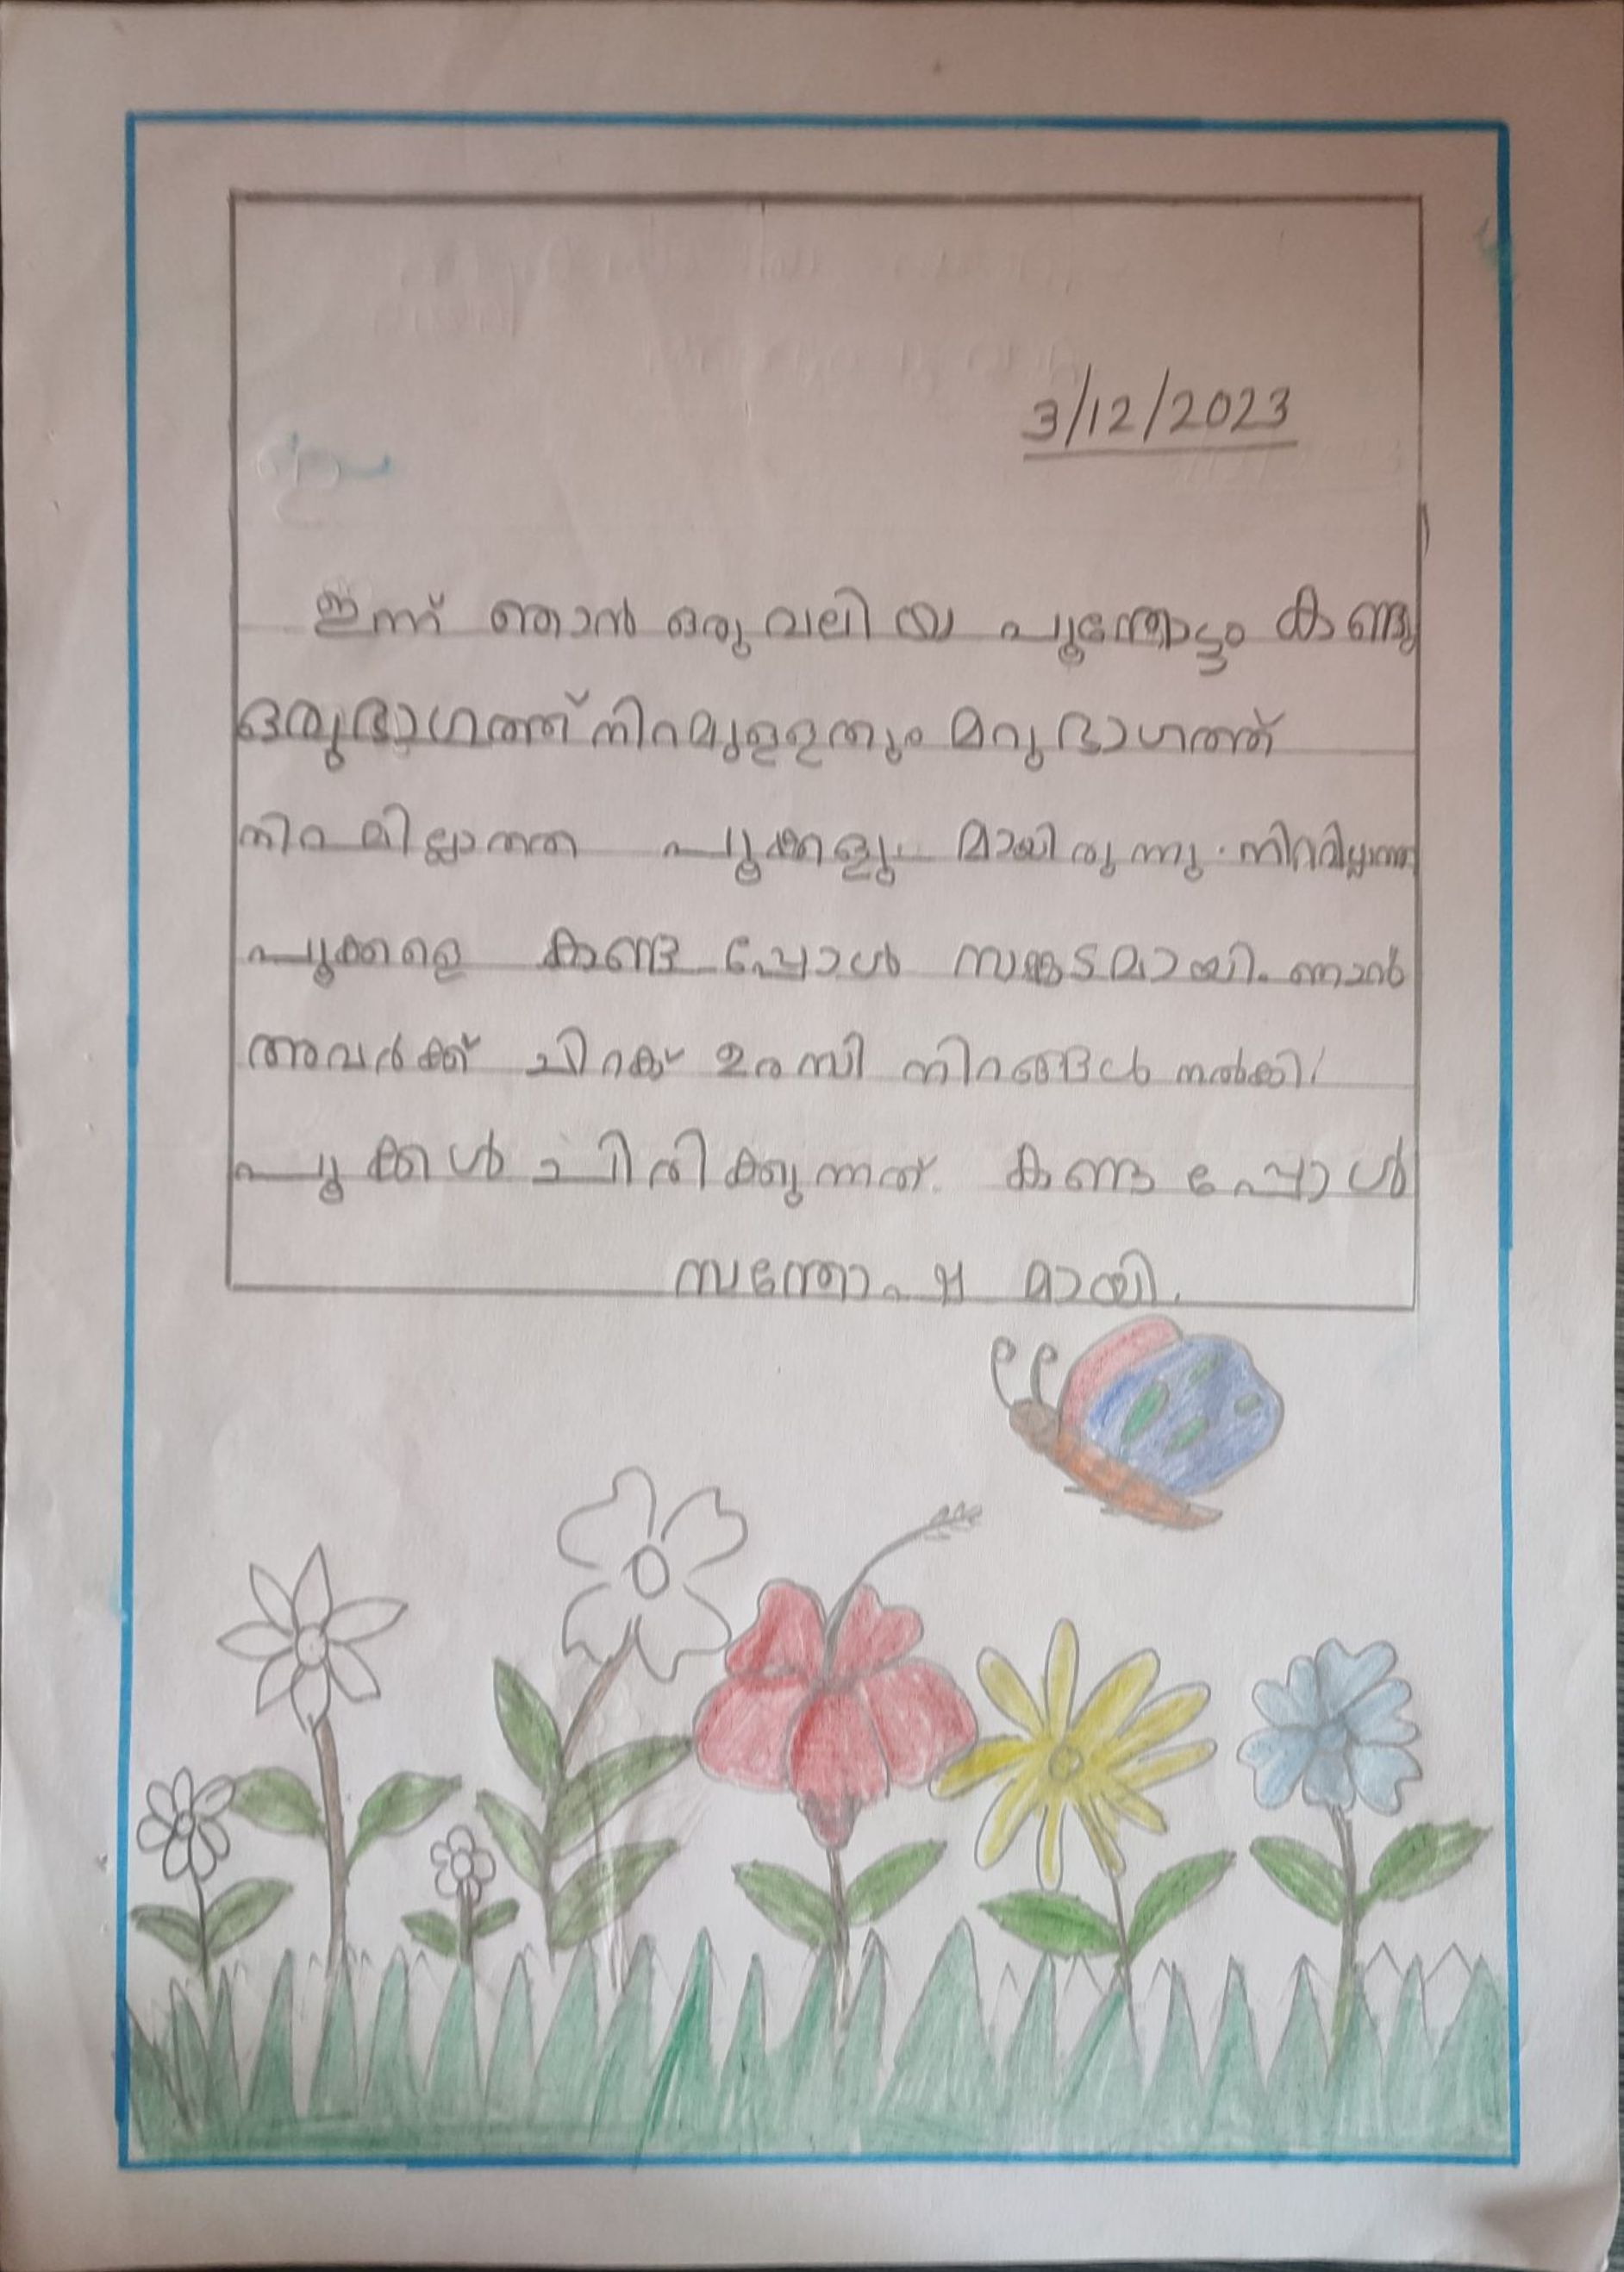 3/12/2023
ഇന്ന് ഞാൻ ഒരു വലിയ പൂന്തോട്ടം കണ്ടു
ഒരുഭാഗത്ത് നിറമുള്ളതും മറുഭാഗത്ത്
നിറമില്ലാത്ത പൂക്കളും മായിരുന്നു. നിറമില്ലാത്ത
പൂക്കളെ കണ്ടപ്പോൾ സങ്കടമായി. ഞാൻ
അവർക്ക് ചിറക് ഉരസി നിറങ്ങൾ നൽകി!
പൂക്കൾ ചിരിക്കുന്നത് കണ്ടപ്പോൾ
സന്തോഷമായി.